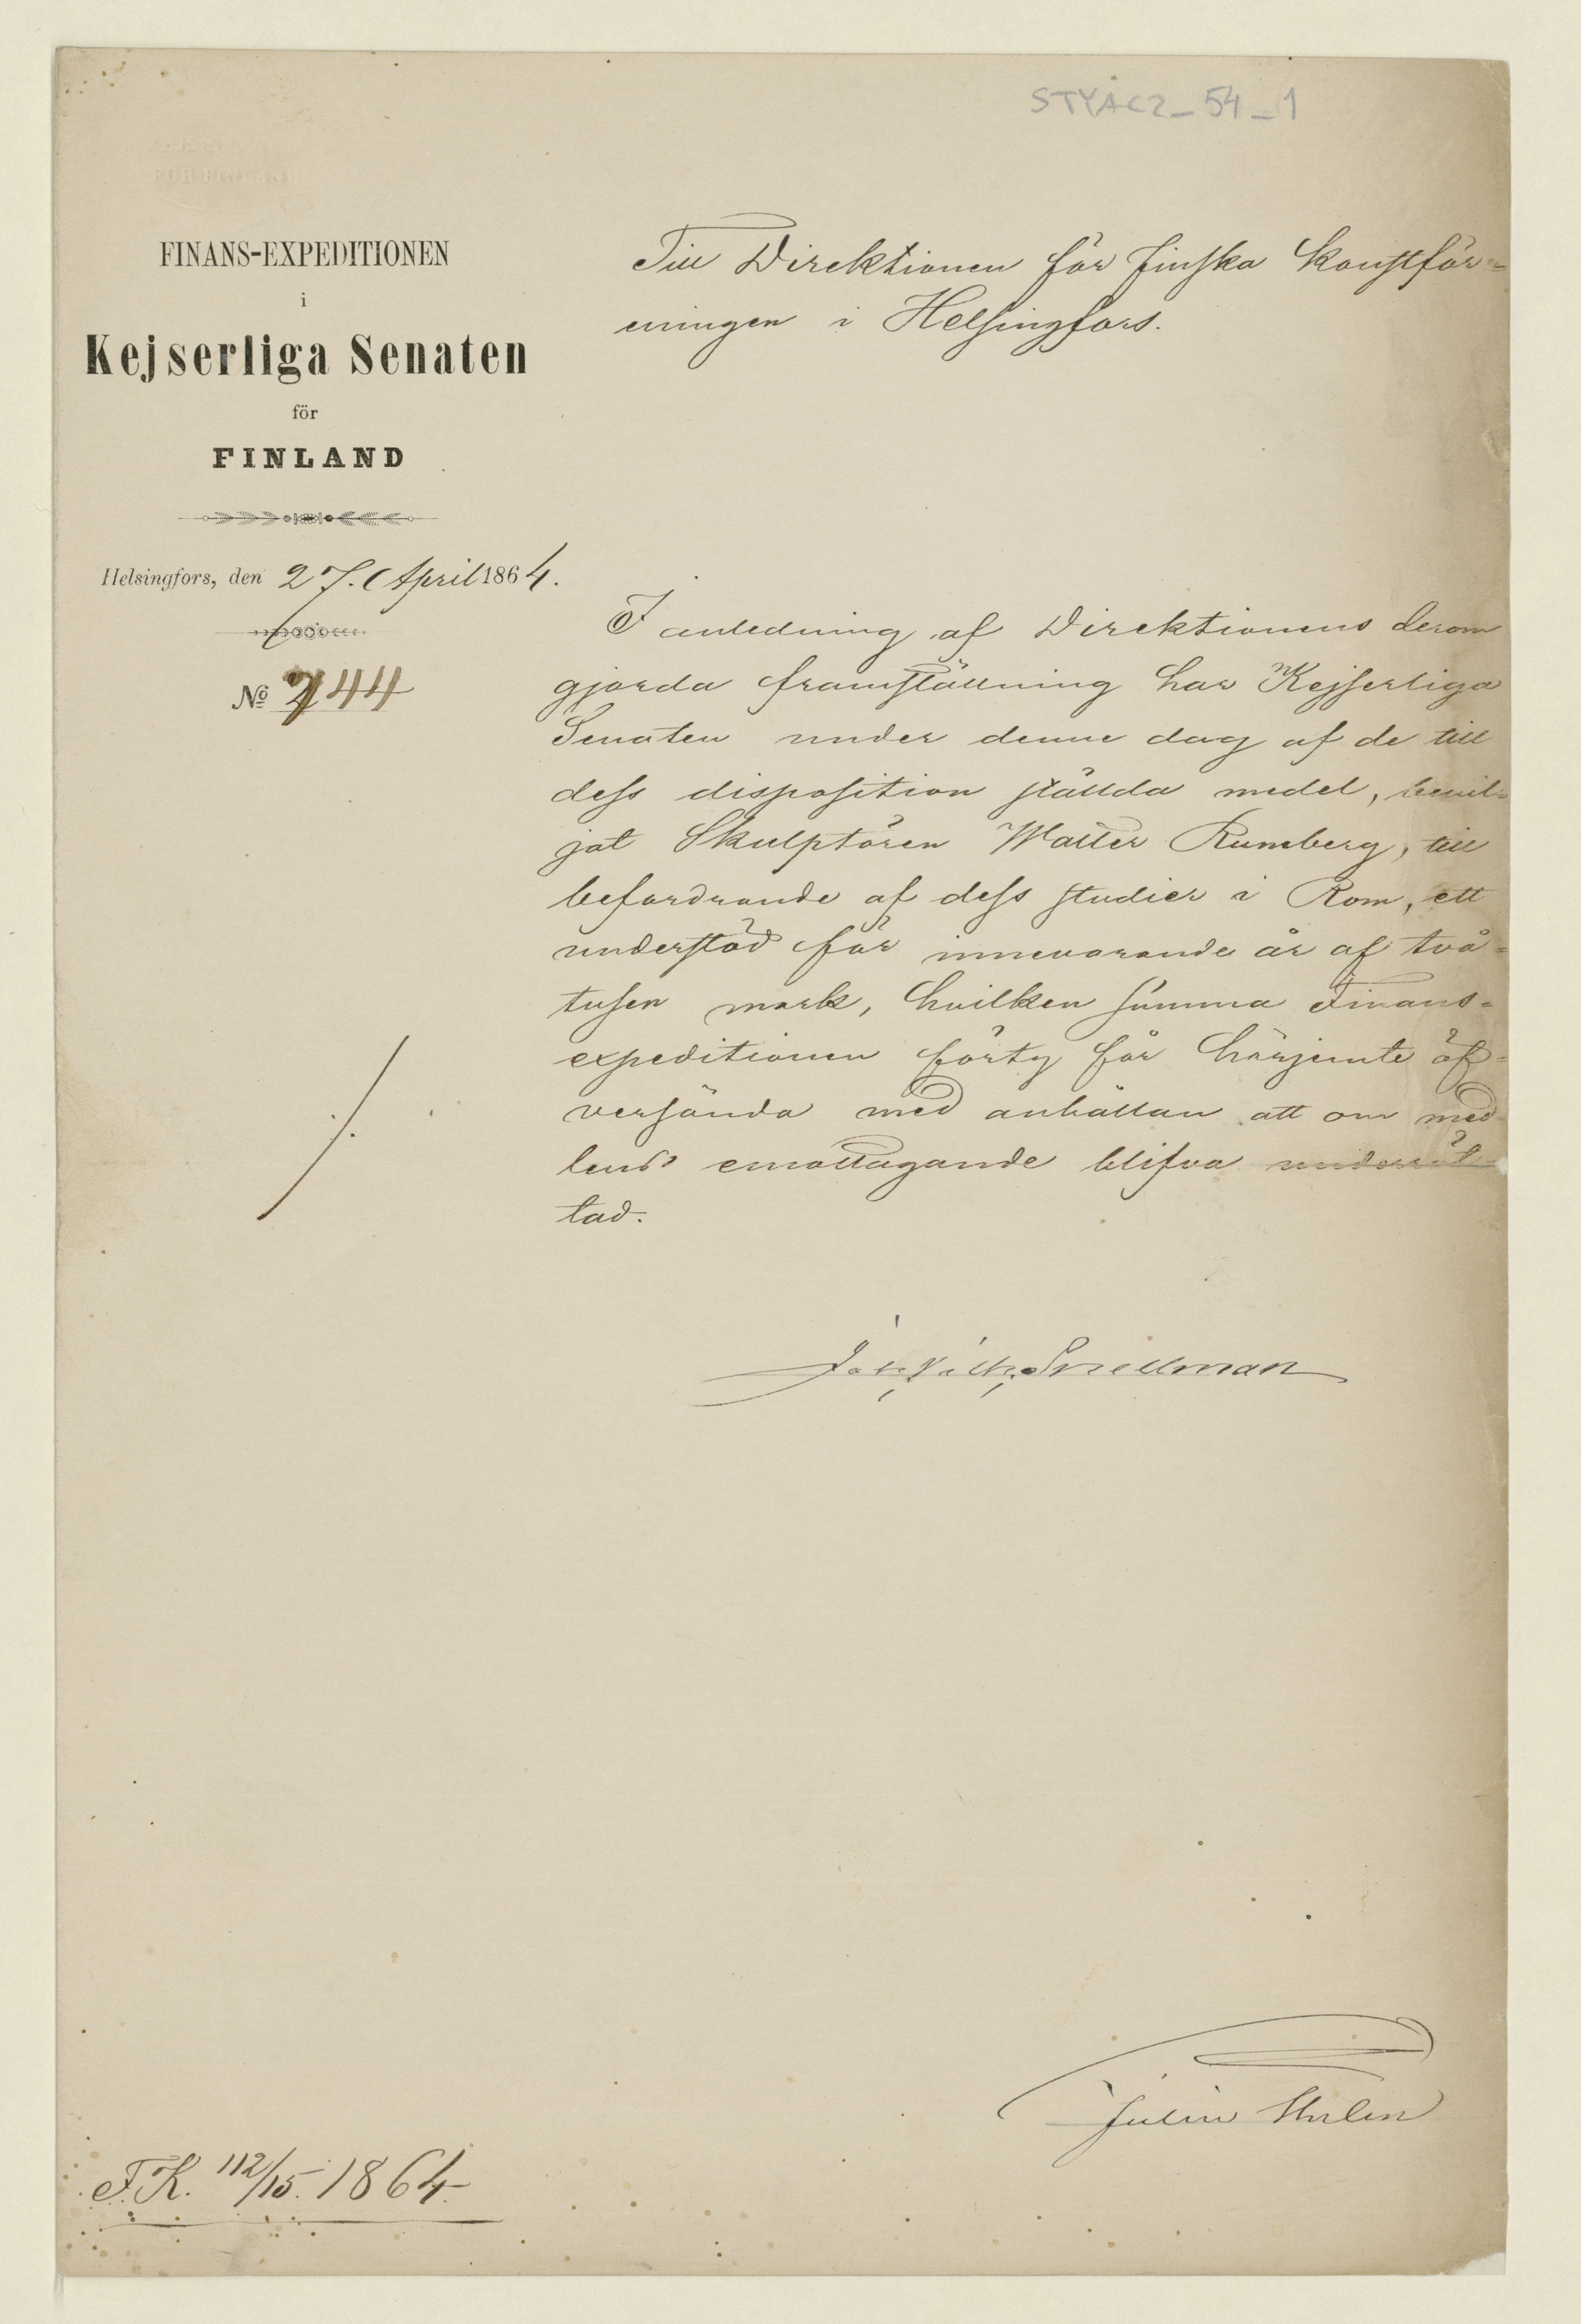 STYAC2_54_1
FINANS-EXPEDITIONEN
i
Kejserliga Senaten
för
FINLAND
Helsingfors, den 27. April 1864.
No 744
Till Direktionen för finska konstför=
eningen i Helsingfors.
I anledning af Direktionens derom
gjorda framställning har Kejserliga
Senaten under denne dag af de till
dess disposition ställda medel, bevil=
jat Skulptören Walter Runeberg, till
befordrande af dess studier i Rom, ett
understöd för innevarande år af två=
tusen mark, hvilken summa Finans=
expeditionen förty får härjemte öf=
versända med anhållan att om med=
lens emottagande blifva underrät=
tad.
./.
Joh. Vilh. Snellman
F.K. 112/15. 1864.